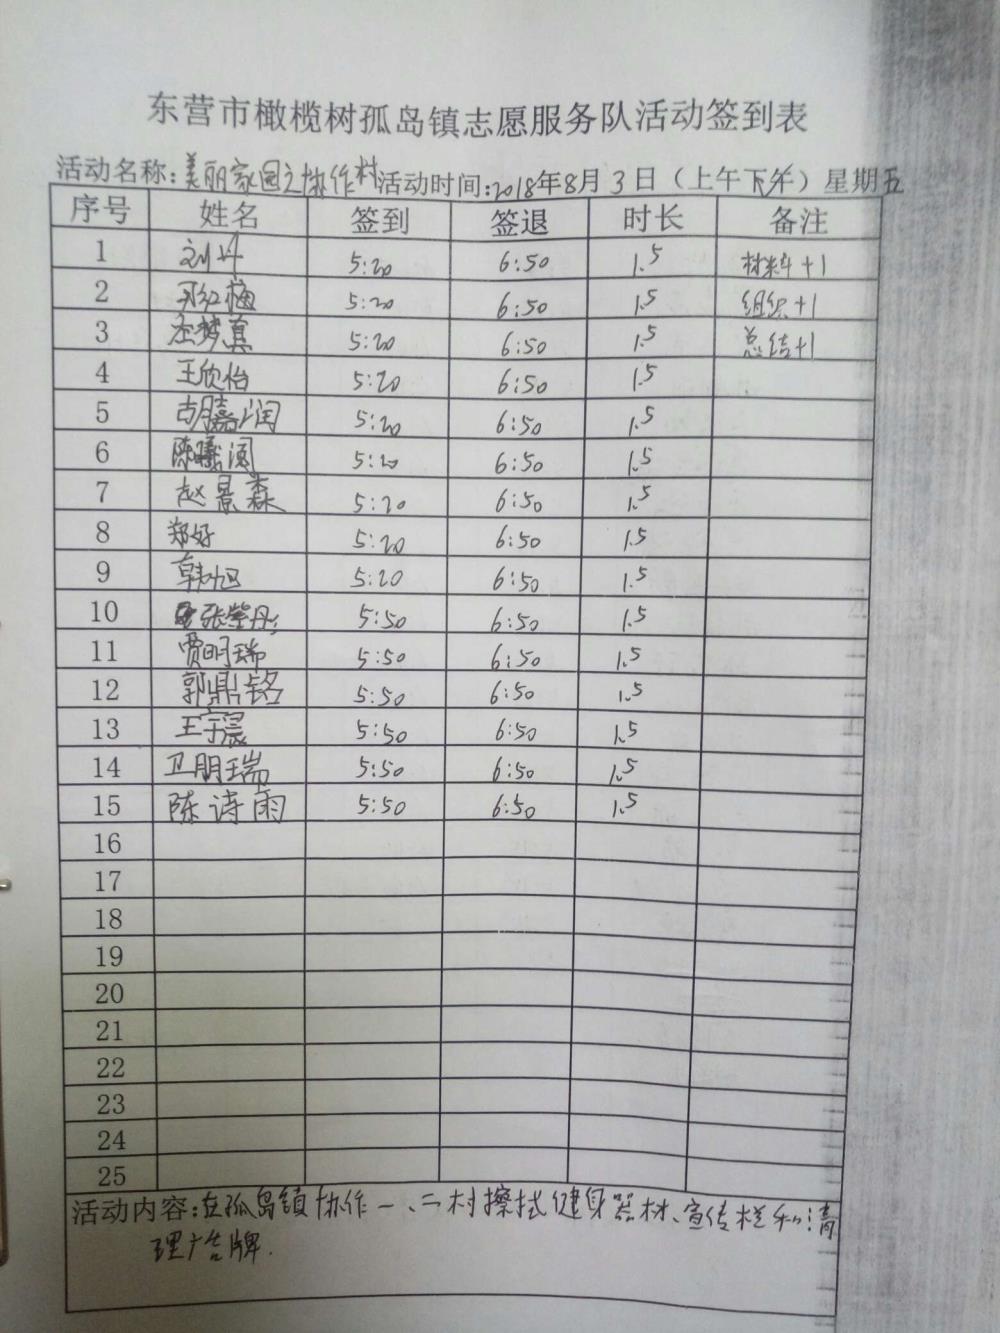 东营市橄榄树孤岛镇志愿服务队活动签到表
活动名称:美丽家园之协作村活动时间:2018年8月3日（上午下午）星期五
序号 姓名 签到 签退 时长 备注
1 刘丹 5:20 6:50 1.5 材料+1
2 红梅 5:20 6:50 1.5 组织+1
3 梦真 5:20 6:50 1.5 总结+1
4 王欣怡 5:20 6:50 1.5
5 胡嘉润 5:20 6:50 1.5
6 陈曦 5:20 6:50 1.5
7 赵景森 5:20 6:50 1.5
8 郑好 5:20 6:50 1.5
9 韩旭 5:20 6:50 1.5
10 张莹丹 5:50 6:50 1.5
11 贾明瑞 5:50 6:50 1.5
12 郭鼎铭 5:50 6:50 1.5
13 王宇晨 5:50 6:50 1.5
14 卫朋瑞 5:50 6:50 1.5
15 陈诗雨 5:50 6:50 1.5
16
17
18
19
20
21
22
23
24
25
活动内容:在孤岛镇协作一、二村擦拭健身器材、宣传栏和清
理广告牌.